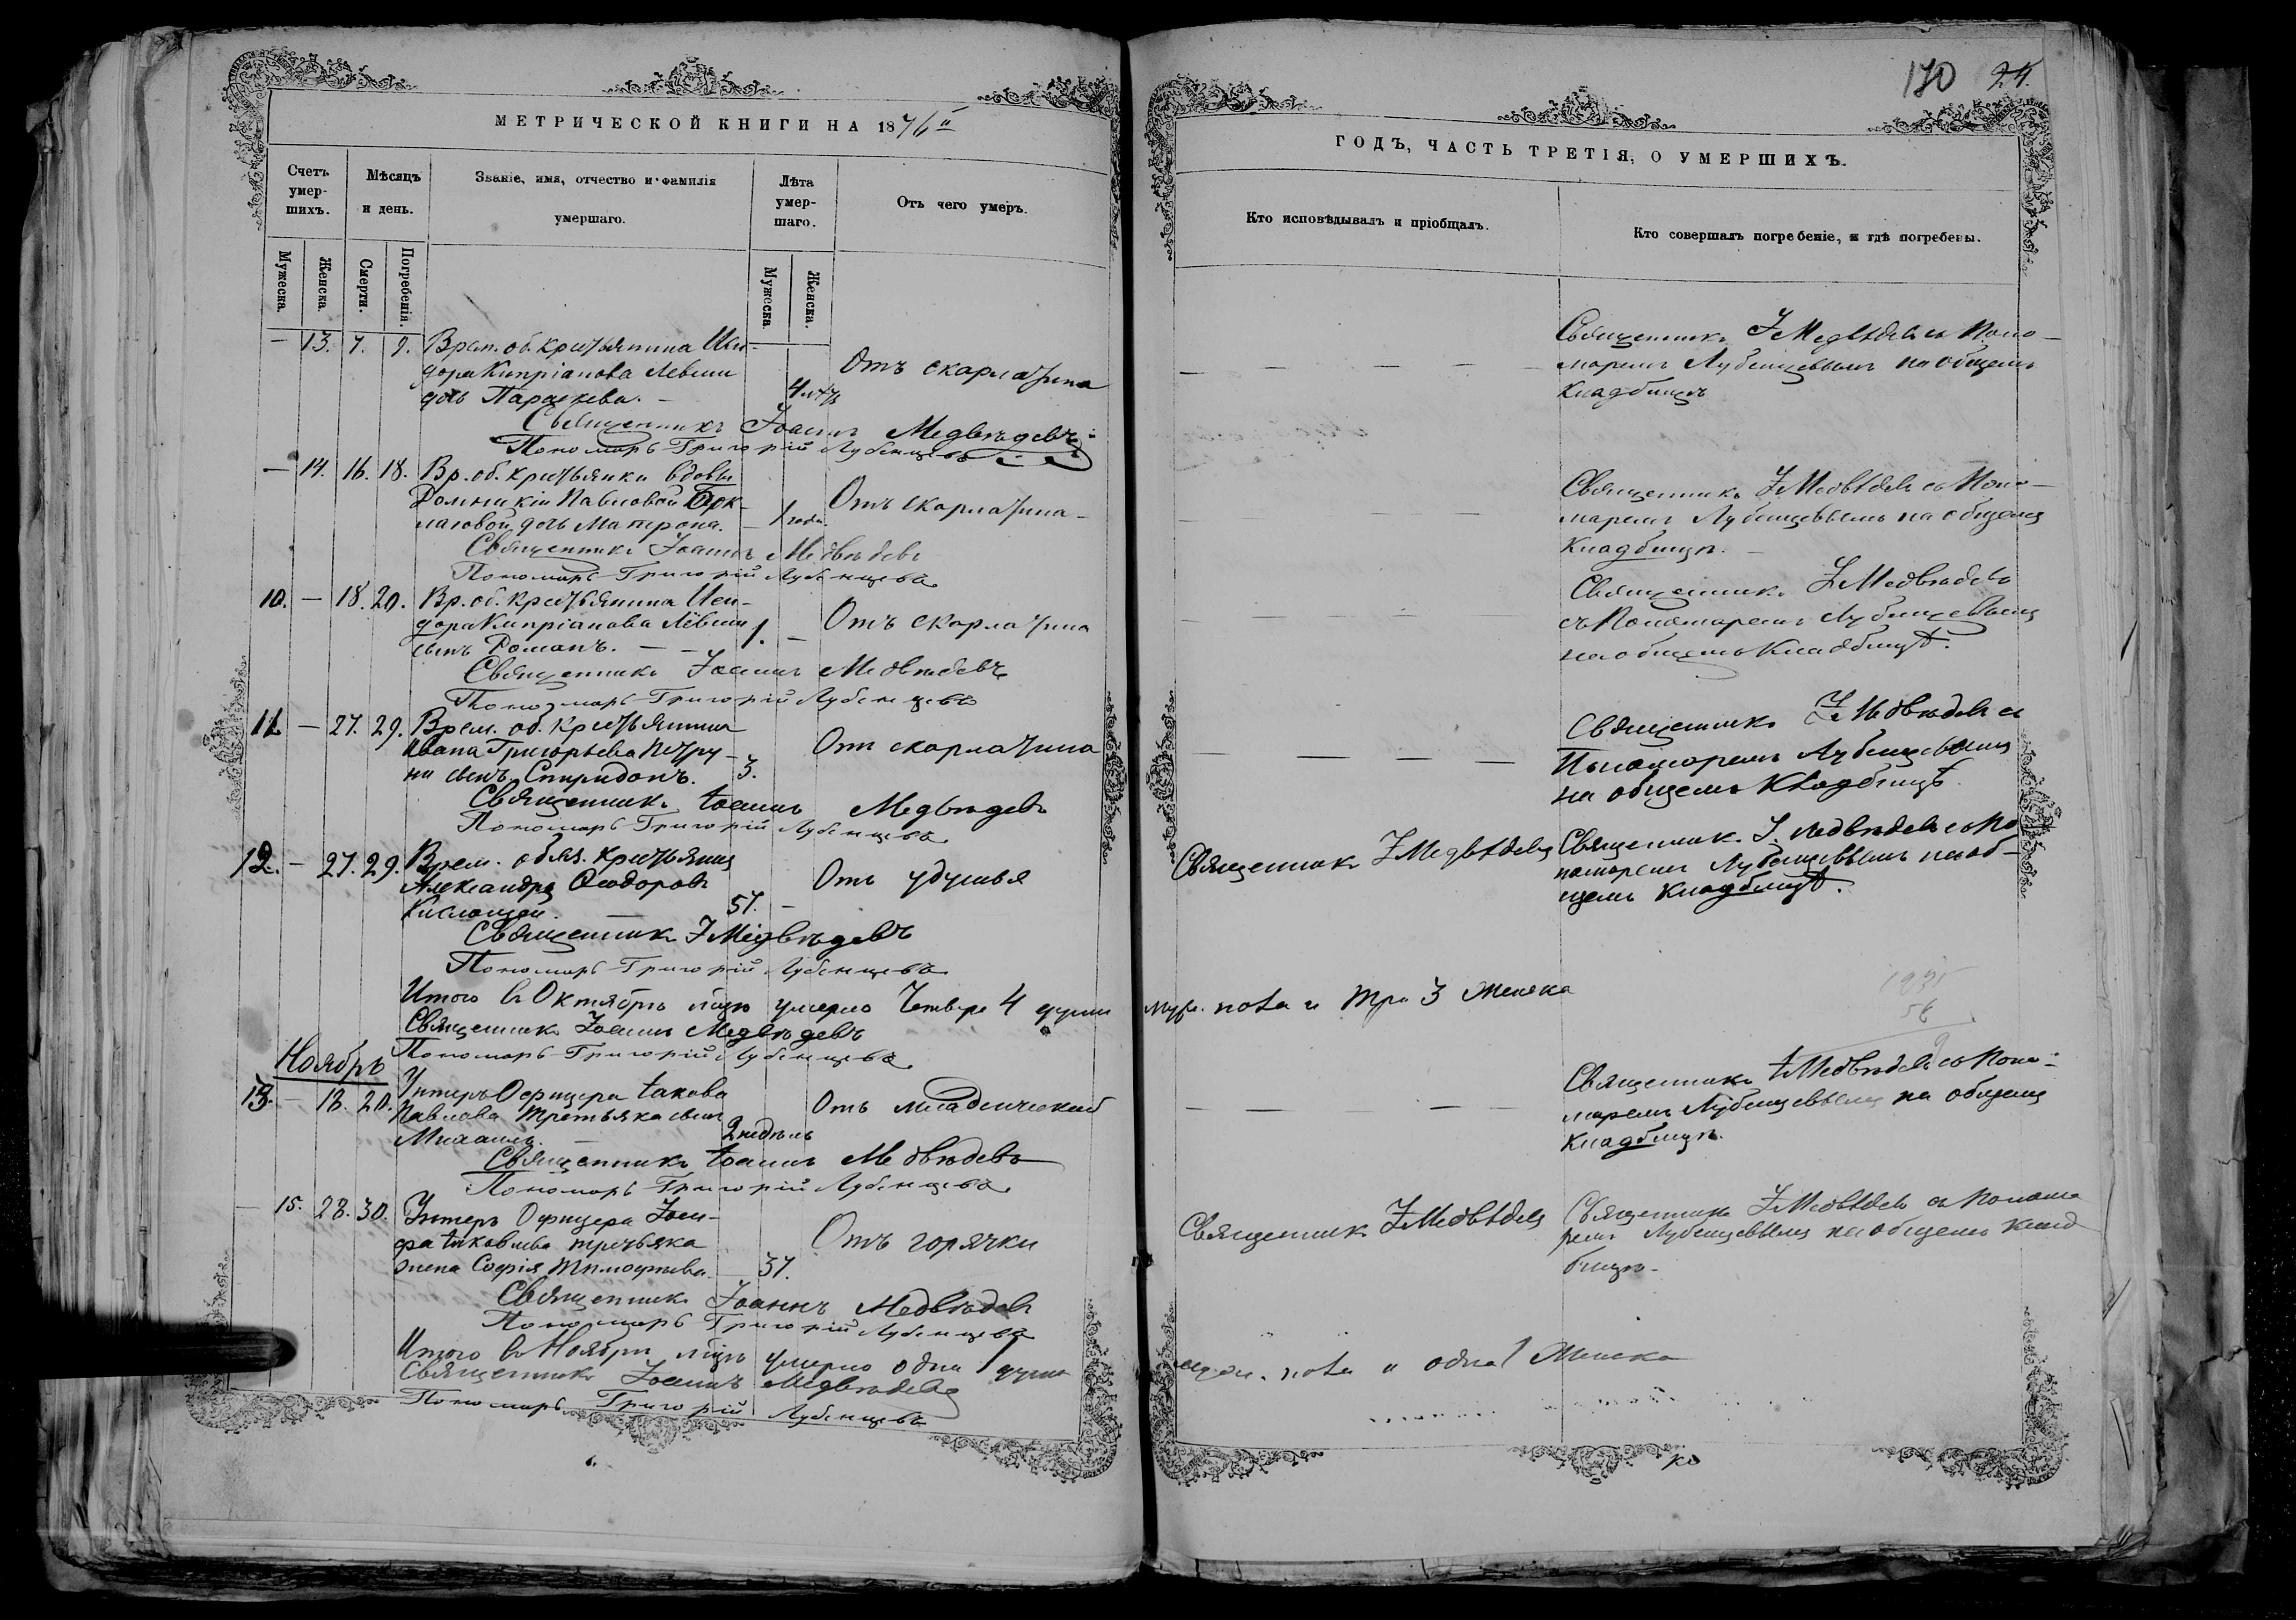 170 24.
МЕТРИЧЕСКОЙ КНИГИ НА 1876й
ГОДЪ, ЧАСТЬ ТРЕТІЯ, О УМЕРШИХЪ.
Счетъ умер-шихъ.
Мѣсяцъ и день.
Званіе, имя, отчество и фамилія умершаго.
Лѣта умер-шаго.
Отъ чего умеръ.
Кто исповѣдывалъ и пріобщалъ.
Кто совершалъ погребеніе, и гдѣ погребены.
Мужеска.
Женска.
Смерти.
Погребенія.
Мужеска
Женска.
— 13. 7. 9. Врем. об. крестьянина Иси-
дора Кипріанова Левши
дочь Параскева. —
Отъ скарлатина
Священникъ І Медвѣдевъ съ Поно-
маремъ Лубенцевымъ на общемъ
Кладбищѣ
Священникъ Іоаннъ Медвѣдевъ
Пономарь Григорій Лубенцевъ
— 14. 16. 18. Вр. об. крестьянки вдовы
Домникіи Павловой
дочь Матрона. — 1 года.
Отъ скарлатина —
Священникъ І Медвѣдевъ съ Поно-
маремъ Лубенцевымъ на общемъ
Кладбищѣ. —
Священникъ Іоаннъ Медвѣдевъ
Пономарь Григорій Лубенцевъ
10. — 18. 20. Вр. об. крестьянина Иси-
дора Кипріанова Левши
сынъ Романъ. — — 1. —
Отъ скарлатина
Священникъ І Медвѣдевъ
съ Пономаремъ Лубенцевымъ
на общемъ Кладбищѣ.
Священникъ Іоаннъ Медвѣдевъ
Пономарь Григорій Лубенцевъ
11. — 27. 29. Врем. об. Крестьянина
Ивана Григорьева Петру-
ни сынъ Спиридонъ. 3.
Отъ скарлатина
Священникъ І Медвѣдевъ съ
Пономаремъ Лубенцевымъ
на общемъ Кладбищѣ.
Священникъ Іоаннъ Медвѣдевъ
Пономарь Григорій Лубенцевъ
12. — 27. 29. Врем. обяз. крестьянинъ
Александръ Ѳеодоровъ
57. —
Отъ удушья
Священникъ І Медвѣдевъ
Священникъ І. Медвѣдевъ съ По-
номаремъ Лубенцевымъ на об-
щемъ Кладбищѣ.
Священникъ І Медвѣдевъ
Пономарь Григорій Лубенцевъ
Итого въ Октябрѣ мѣсяцѣ умерло Четверо 4 души муж. пола и три 3 женска
Священникъ Іоаннъ Медвѣдевъ
Пономарь Григорій Лубенцевъ
Ноябрь
13. — 18. 20. Унтеръ Офицера Іакова
Павлова Третьяка сынъ
Михаилъ. — 2 недѣль
Отъ младенческой
Священникъ І Медвѣдевъ съ Поно-
маремъ Лубенцевымъ на общемъ
Кладбищѣ.
Священникъ Іоаннъ Медвѣдевъ
Пономарь Григорій Лубенцевъ
— 15. 28. 30. Унтеръ Офицера Іоси-
фа Іаковлева третьяка
жена Софія Тимофѣева. — 37.
Отъ горячки
Священникъ І Медвѣдевъ
Священникъ І Медвѣдевъ съ Понома
ремъ Лубенцевымъ на общемъ клад
бищѣ. —
Священникъ Іоаннъ Медвѣдевъ
Пономарь Григорій Лубенцевъ
Итого въ Ноябрѣ мѣсяцѣ умерло одна 1 душа муж. пола и одна 1 женска
Священникъ Іоаннъ Медвѣдевъ
Пономарь Григорій Лубенцевъ